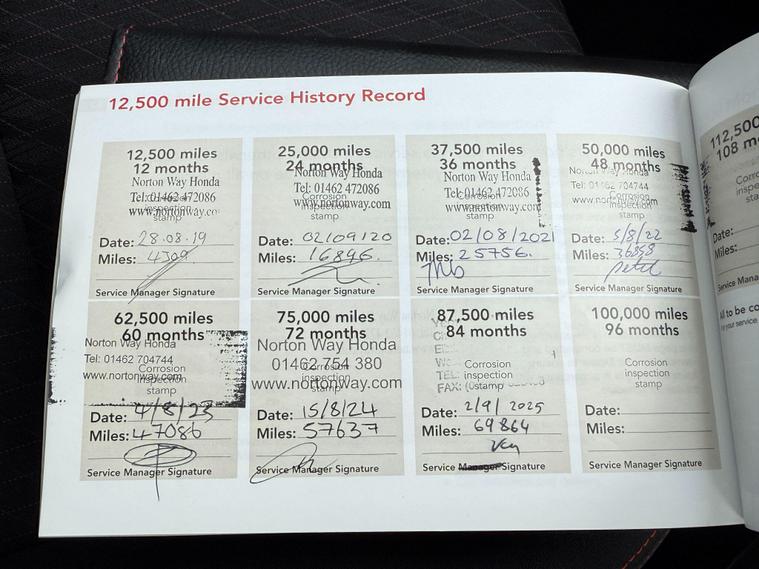 12,500 mile Service History Record
12,500 miles
12 months
Norton Way Honda
Tel: 01462 472086
Corrosion
inspection
www.nortonway.co
stamp
Date: 28.08.19
Miles: 4309
Service Manager Signature
25,000 miles
24 months
Norton Way Honda
Tel: 01462 472086
Corrosion
inspection
www.nortonway.com
stamp
Date: 02/09/20
Miles: 16846.
Service Manager Signature
37,500 miles
36 months
Norton Way Honda
Tel: 01462 472086
Corrosion
inspection
www.nortonway.com
stamp
Date: 02/08/2021
Miles: 25756.
Service Manager Signature
50,000 miles
48 months
Norton Way Honda
Tel: 01462 704744
Corrosion
inspection
www.nortonway.com
stamp
Date: 5/8/22
Miles: 36858
Service Manager Signature
62,500 miles
60 months
Norton Way Honda
Tel: 01462 704744
Corrosion
www.nortonway.com
inspection
stamp
Date: 4/8/23
Miles: 47086
Service Manager Signature
75,000 miles
72 months
Norton Way Honda
01462 754 380
Corrosion
inspection
www.nortonway.com
stamp
Date: 15/8/24
Miles: 57637
Service Manager Signature
87,500 miles
84 months
Corrosion
TEL: inspection
FAX: stamp
Date: 2/9/2025
Miles: 69864
Service Manager Signature
100,000 miles
96 months
Corrosion
inspection
stamp
Date:
Miles:
Service Manager Signature
112,500
108 m
Corro
inspe
sta
Date:
Miles:
Service Mana
All to be co
for your service